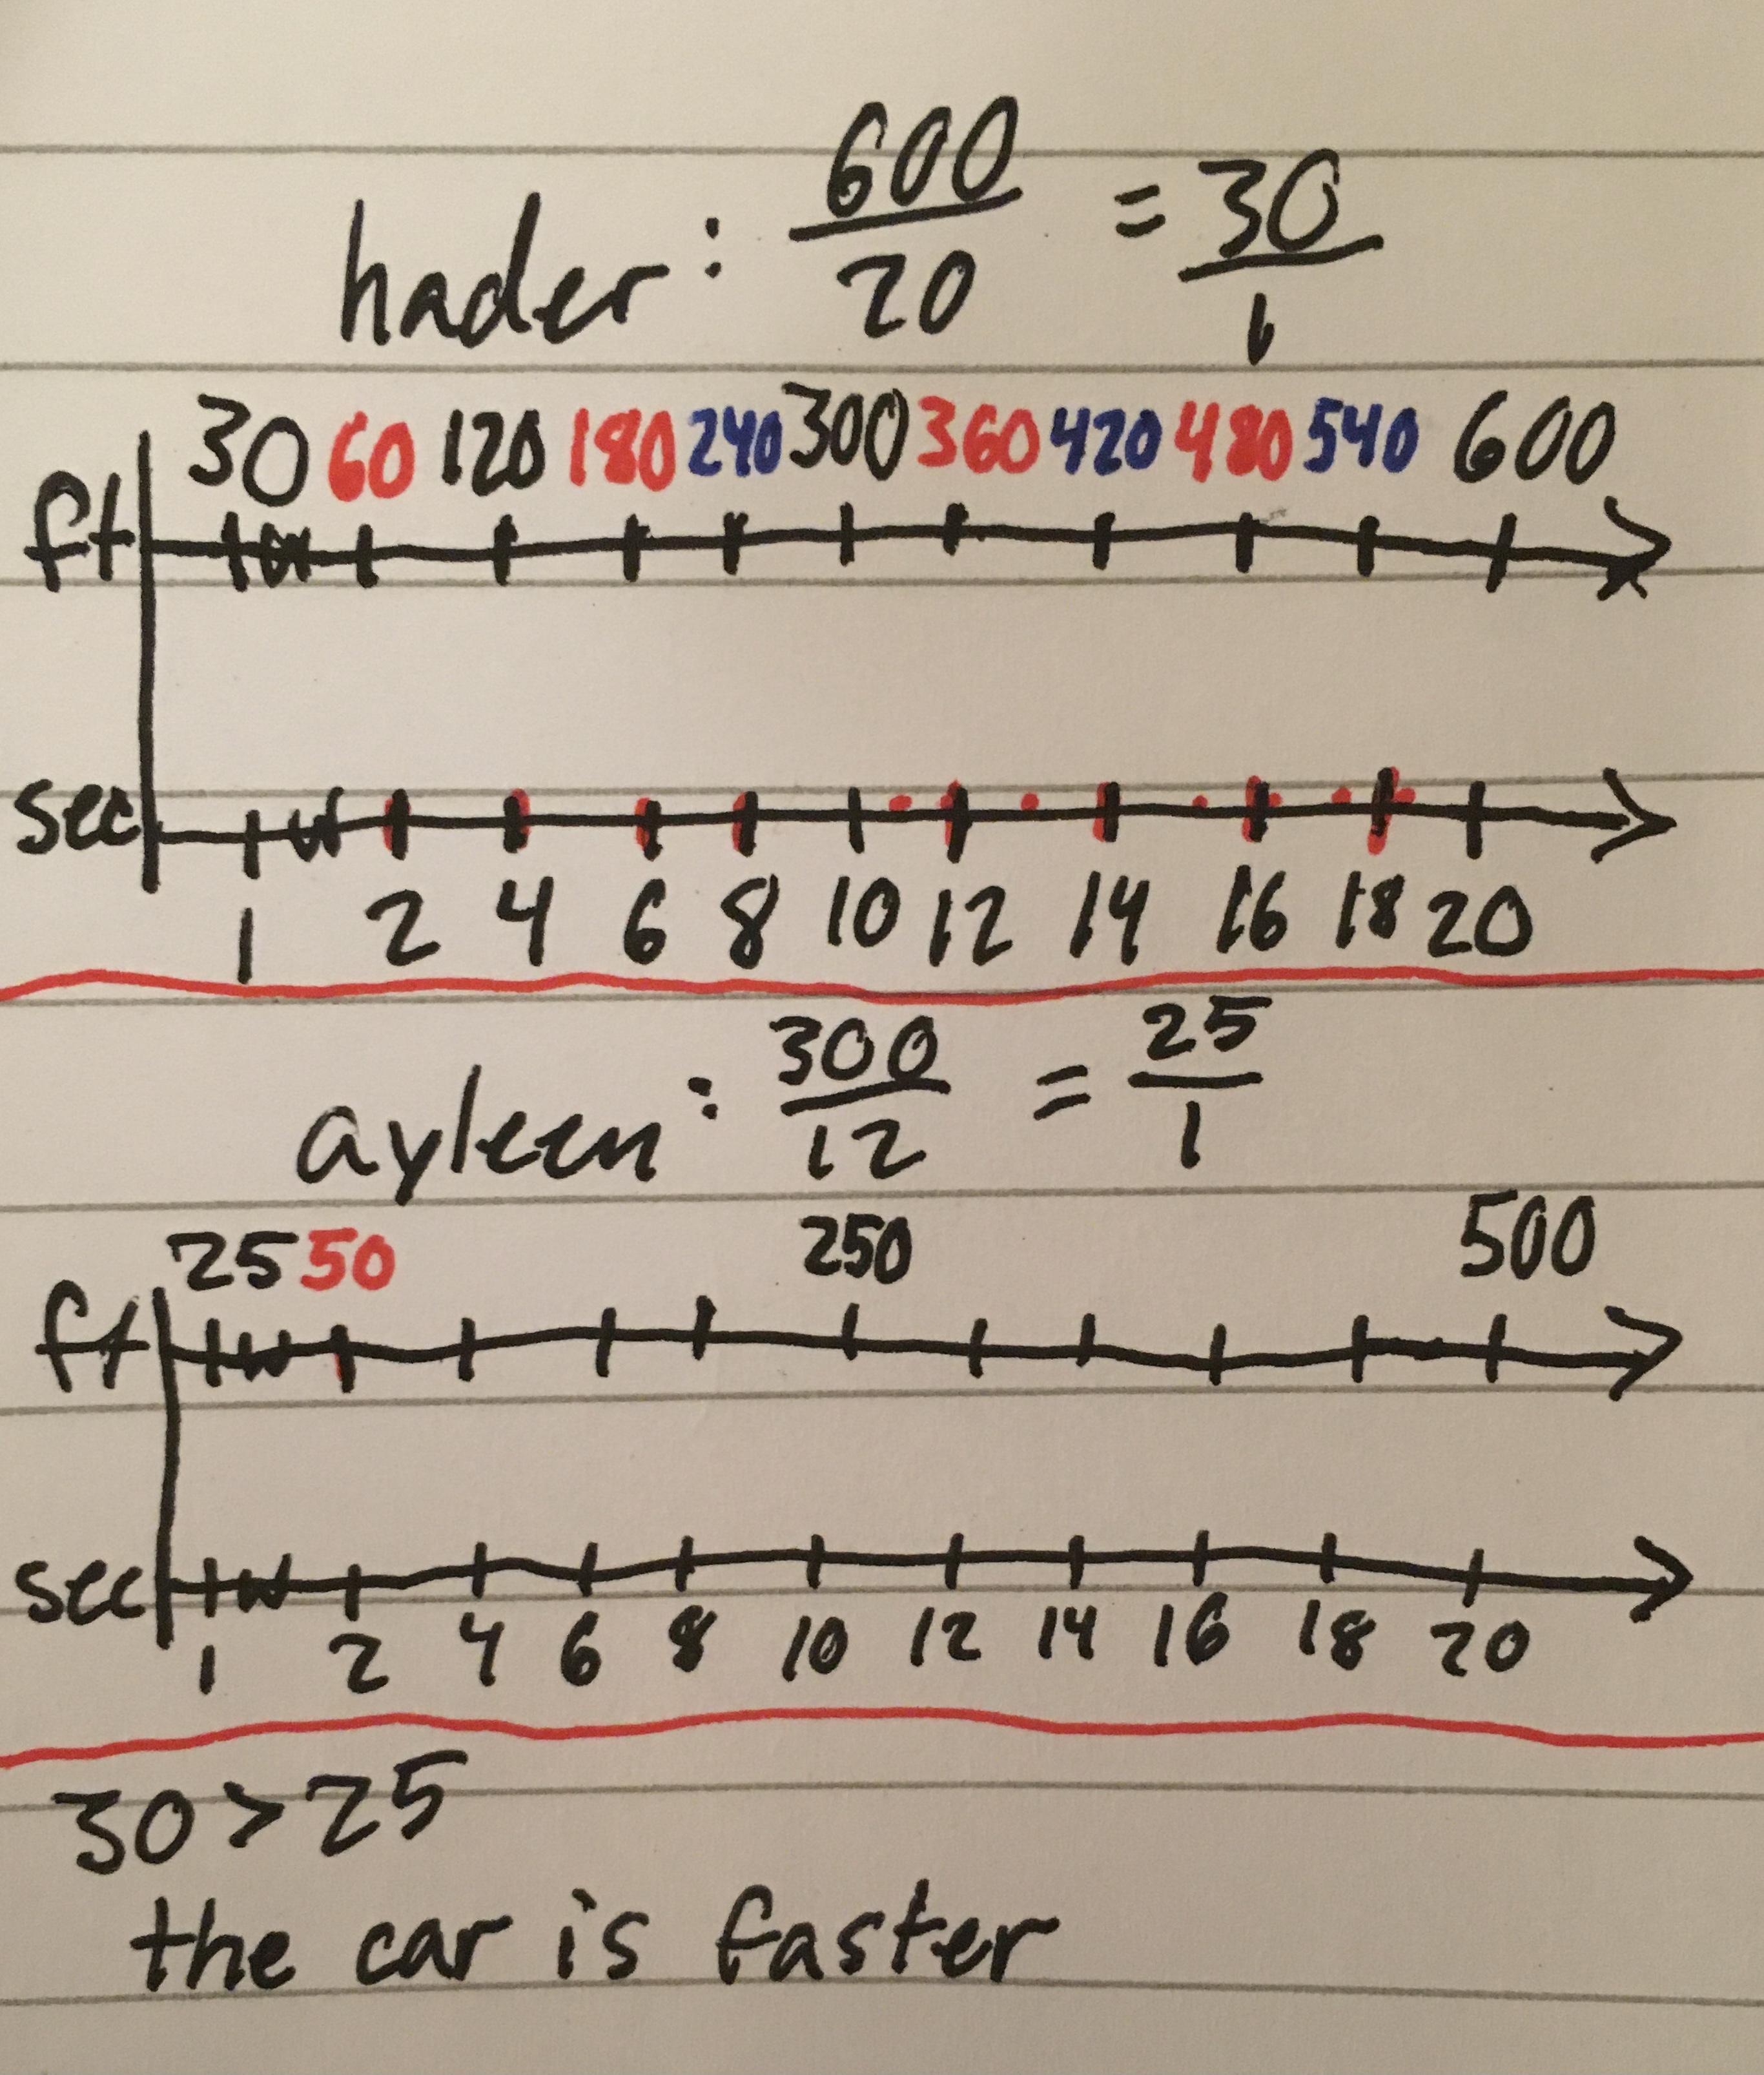 hader: 600/20 = 30/1
30 60 120 180 240 300 360 420 480 540 600
ft
sec
1 2 4 6 8 10 12 14 16 18 20
ayleen: 300/12 = 25/1
25 50 250 500
ft
sec
1 2 4 6 8 10 12 14 16 18 20
30 > 25
the car is faster